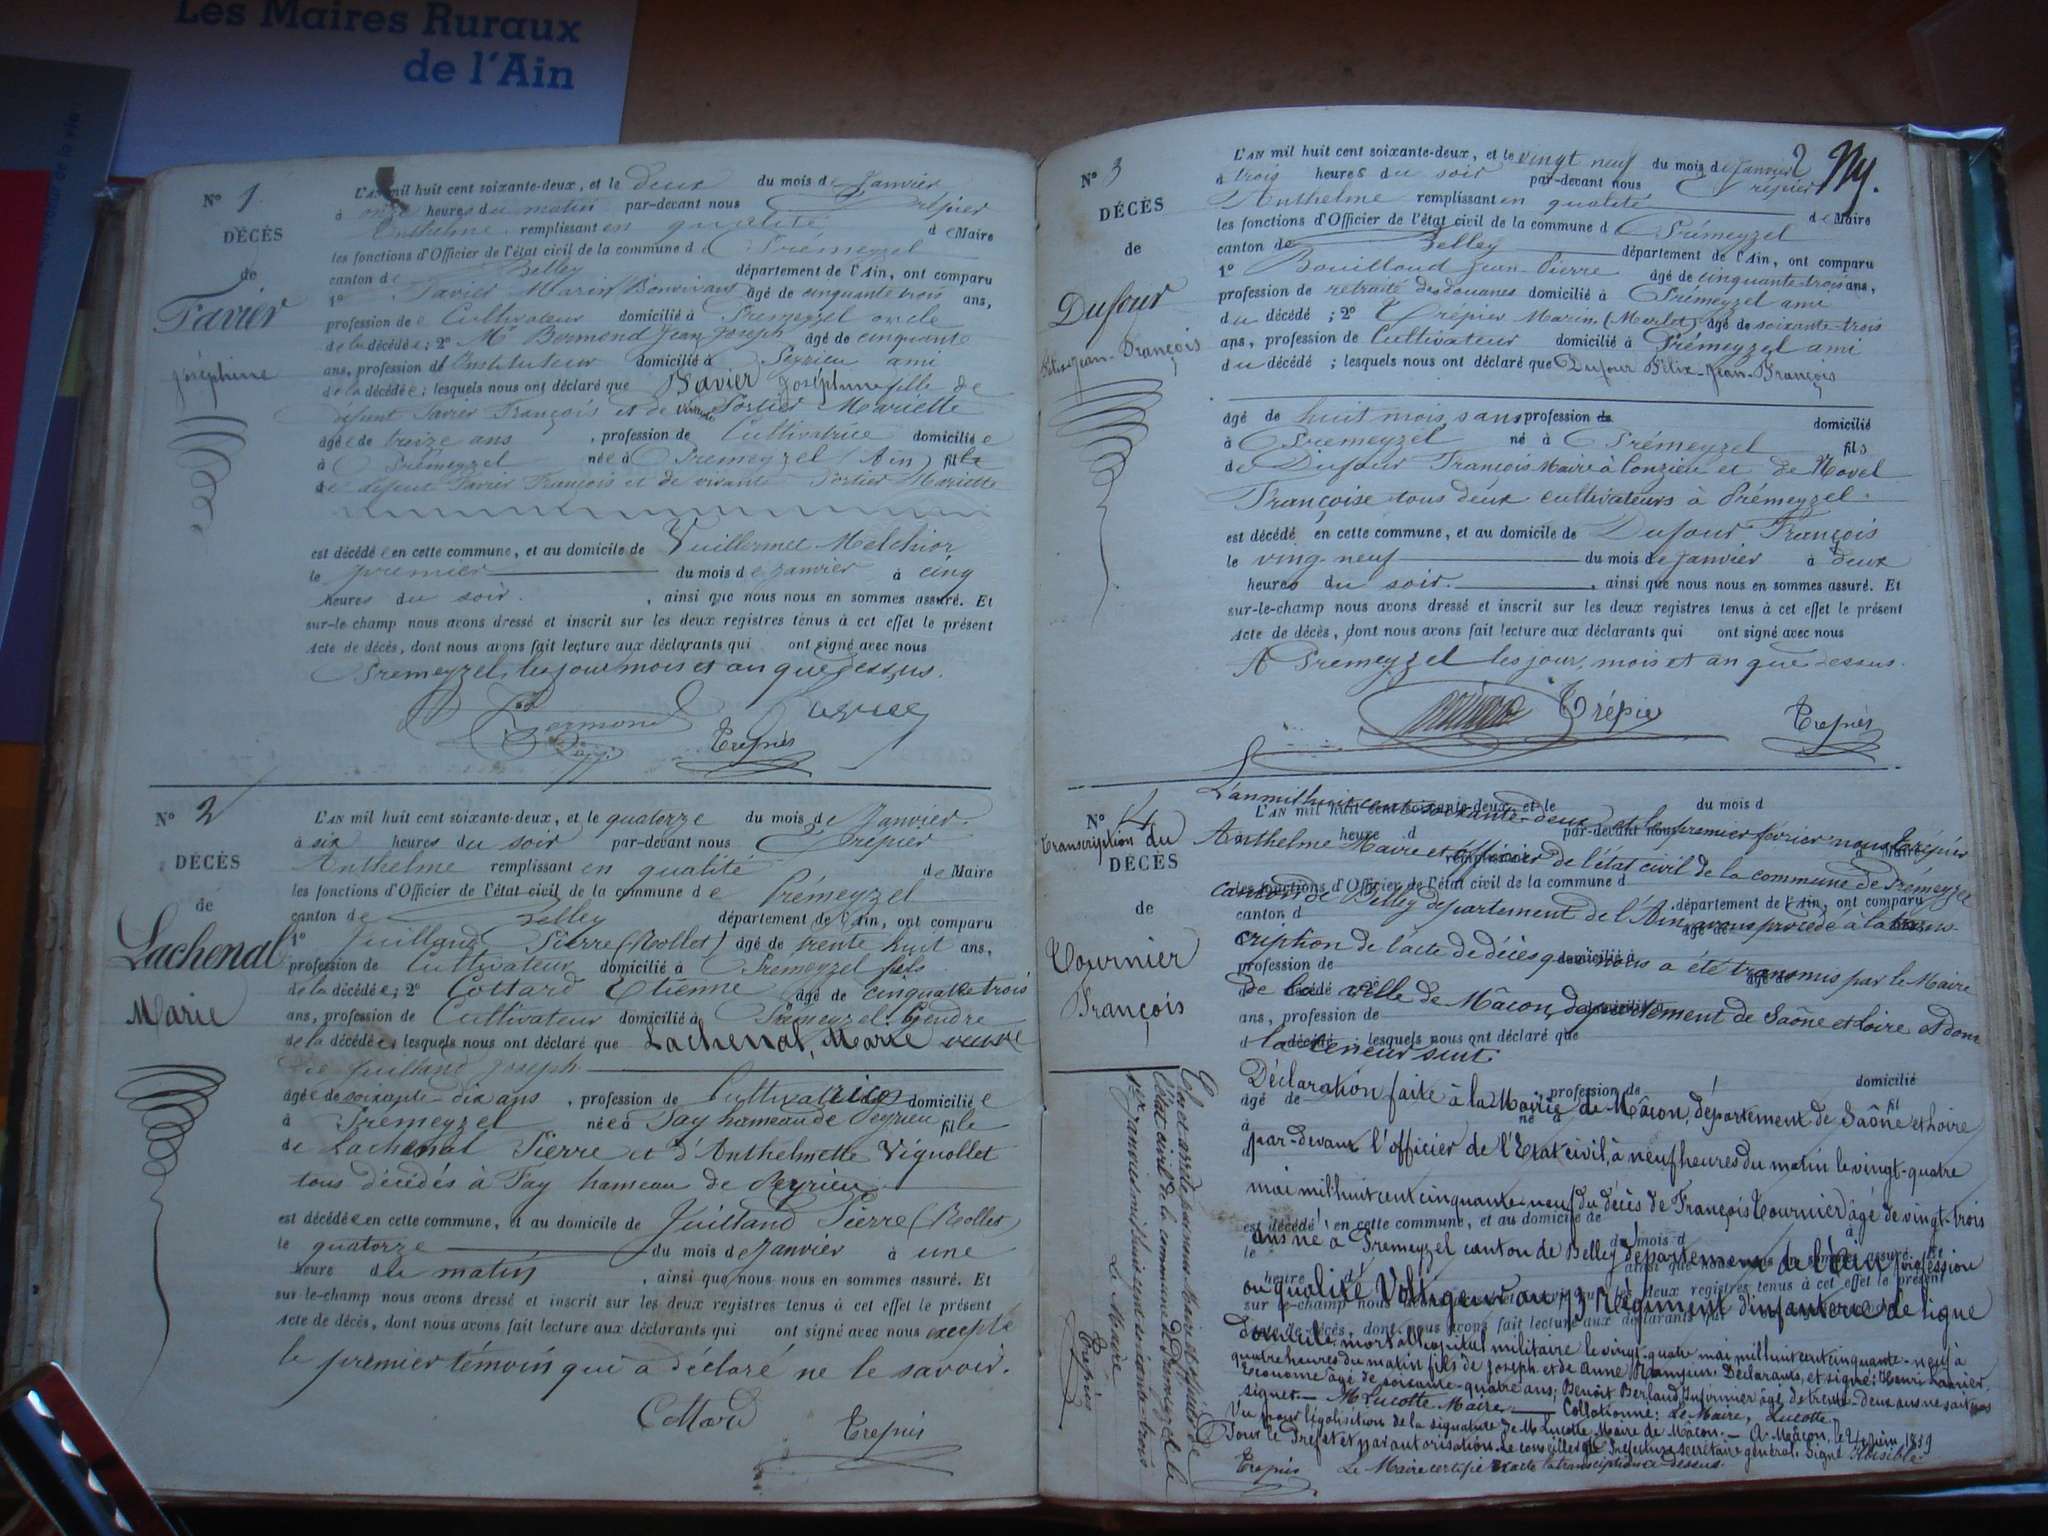 Les Maires Ruraux
de l'Ain
N° 1
DÉCÈS
de
Favier
Joséphine
L'AN mil huit cent soixante-deux, et le deux du mois de Janvier
à onze heures du matin par-devant nous Trépier
Anthelme remplissant en qualité de Maire
les fonctions d'Officier de l'état civil de la commune de Prémeyzel
canton de Belley département de l'Ain, ont comparu
1° Favier Marin (Bonvivant) âgé de cinquante trois ans,
profession de Cultivateur domicilié à Prémeyzel oncle
de la décédée; 2° Mr Bermond Jean Joseph âgé de cinquante
ans, profession d'Instituteur domicilié à Peyrieu ami
de la décédée; lesquels nous ont déclaré que Favier Joséphine fille de
défunt Favier François et de vivante Portier Mariette
âgée de treize ans , profession de Cultivatrice domiciliée
à Prémeyzel née à Premeyzel (Ain) fille
de défunt Favier François et de vivante Portier Mariette
est décédée en cette commune, et au domicile de Vuillermet Melchior
le premier du mois de Janvier à cinq
heures du soir. , ainsi que nous nous en sommes assuré. Et
sur-le-champ nous avons dressé et inscrit sur les deux registres tenus à cet effet le présent
Acte de décès, dont nous avons fait lecture aux déclarants qui ont signé avec nous
Premeyzel, les jour mois et an que dessus.
Bermond
Trépier
N° 2
DÉCÈS
de
Lachenal
Marie
L'AN mil huit cent soixante-deux, et le quatorze du mois de Janvier
à six heures du soir par-devant nous Trépier
Anthelme remplissant en qualité de Maire
les fonctions d'Officier de l'état civil de la commune de Prémeyzel
canton de Belley département de l'Ain, ont comparu
1° Juilland Pierre (Rollet) âgé de trente huit ans,
profession de Cultivateur domicilié à Prémeyzel fils
de la décédée; 2° Cottard Etienne âgé de cinquante trois
ans, profession de Cultivateur domicilié à Prémeyzel Gendre
de la décédée lesquels nous ont déclaré que Lachenal, Marie veuve
de Juilland Joseph
âgée de soixante-dix ans , profession de Cultivatrice domiciliée
à Premeyzel née à Fay hameau de Peyrieu fille
de Lachenal Pierre et d'Anthelmette Vignollet
tous décédés à Fay hameau de Peyrieu
est décédée en cette commune, et au domicile de Juilland Pierre (Rollet)
le quatorze du mois de Janvier à une
heure du matin , ainsi que nous nous en sommes assuré. Et
sur-le-champ nous avons dressé et inscrit sur les deux registres tenus à cet effet le présent
Acte de décès, dont nous avons fait lecture aux déclarants qui ont signé avec nous excepté
le premier témoin qui a déclaré ne le savoir.
Cottard
Trépier
2
N° 3
DÉCÈS
de
Dufour
Félix-Jean-François
L'AN mil huit cent soixante-deux, et le vingt neuf du mois de Janvier
à trois heures du soir par-devant nous Trépier
Anthelme remplissant en qualité de Maire
les fonctions d'Officier de l'état civil de la commune d Prémeyzel
canton de Belley département de l'Ain, ont comparu
1° Bouilloud Jean-Pierre âgé de cinquante-trois ans,
profession de retraité des douanes domicilié à Prémeyzel ami
du décédé ; 2° Trépier Marin (Merlot) âgé de soixante-trois
ans, profession de Cultivateur domicilié à Prémeyzel ami
du décédé ; lesquels nous ont déclaré que Dufour Félix-Jean-François
âgé de huit mois sans profession de domicilié
à Premeyzel né à Prémeyzel fils
de Dufour François Maire à Conzieu et de Novel
Françoise tous deux cultivateurs à Prémeyzel.
est décédé en cette commune, et au domicile de Dufour François
le ving-neuf du mois de Janvier à deux
heures du soir. , ainsi que nous nous en sommes assuré. Et
sur-le-champ nous avons dressé et inscrit sur les deux registres tenus à cet effet le présent
Acte de décès, dont nous avons fait lecture aux déclarants qui ont signé avec nous
A Premeyzel les jour, mois et an que dessus.
Trépier
Trépier
N° 4
Transcription du
DÉCÈS
de
Tournier
François
L'an mil huit cent soixante-deux et le premier février nous Trépier
Anthelme Maire et officier de l'état civil de la commune de Prémeyzel
canton de Belley département de l'Ain avons procédé à la trans-
cription de l'acte de décès que nous a été transmis par le Maire
de la ville de Mâcon, département de Saône et Loire et dont
la teneur suit:
Déclaration faite à la Mairie de Mâcon, département de Saône et Loire
par-devant l'officier de l'Etat civil, à neuf heures du matin le vingt-quatre
mai mil huit cent cinquante-neuf du décès de François Tournier âgé de vingt-trois
ans né à Premeyzel canton de Belley département de l'Ain profession
ou qualité Voltigeur au 73e Régiment d'infanterie de ligne
domicilié mort à l'hôpital militaire le vingt-quatre mai mil huit cent cinquante-neuf à
quatre heures du matin fils de Joseph et de Anne Déclarants, et signé: Henri
Econome âgé de soixante-quatre ans; Benoît Berland Infirmier âgé de trente-deux ans ne sait pas
signer. — M. Lucotte Maire. — Collationné: Le Maire, Lucotte
Vu pour légalisation de la signature de M. Lucotte Maire de Mâcon. — A Mâcon, le 24 juin 1859
Pour le Préfet et par autorisation le conseiller de Préfecture secrétaire général. Signé Illisible
Trépier Le Maire certifie exacte la transcription ci-dessus.
Clos et arrêté par nous Maire et officier de
l'état civil de la commune de Prémeyzel le
1er janvier mil huit cent soixante-trois
Le Maire
Trépier